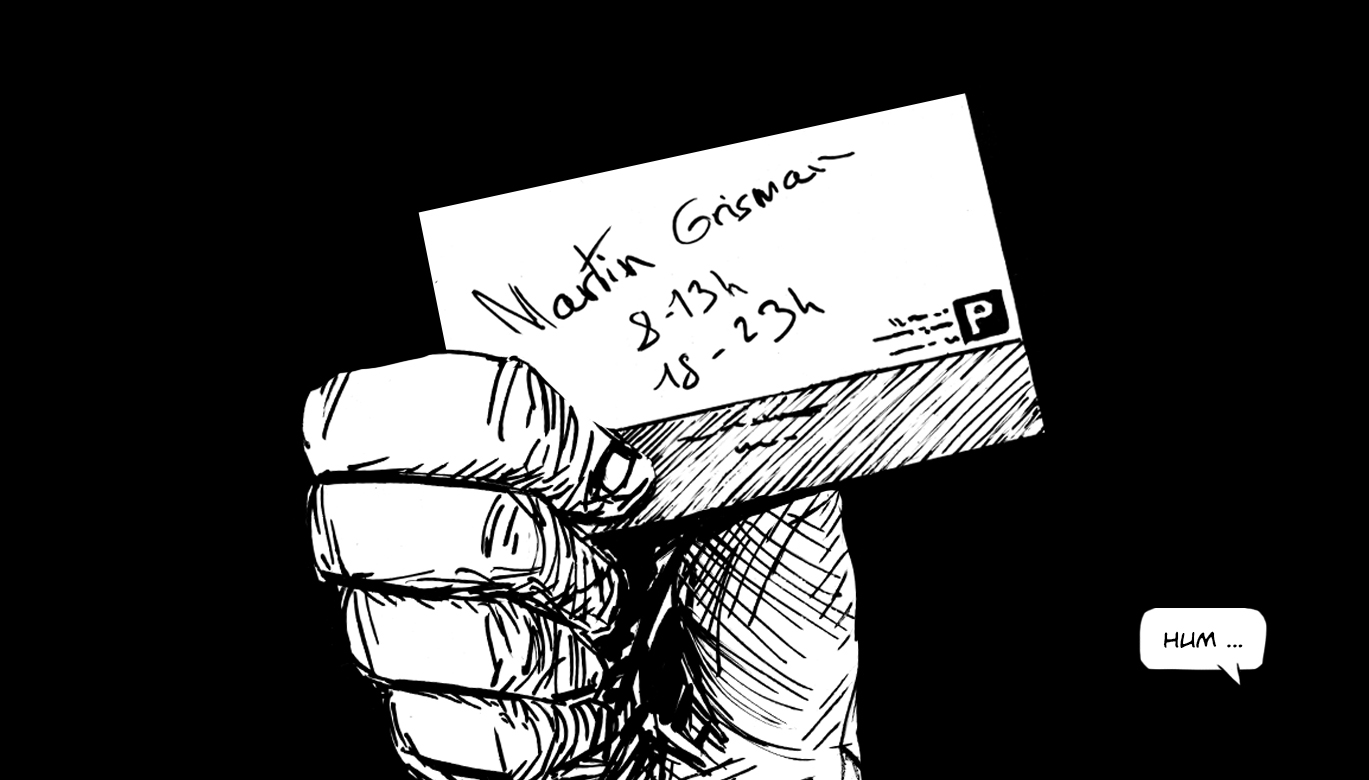 Martin Grisman
8-13h
18-23h
P
HUM ...